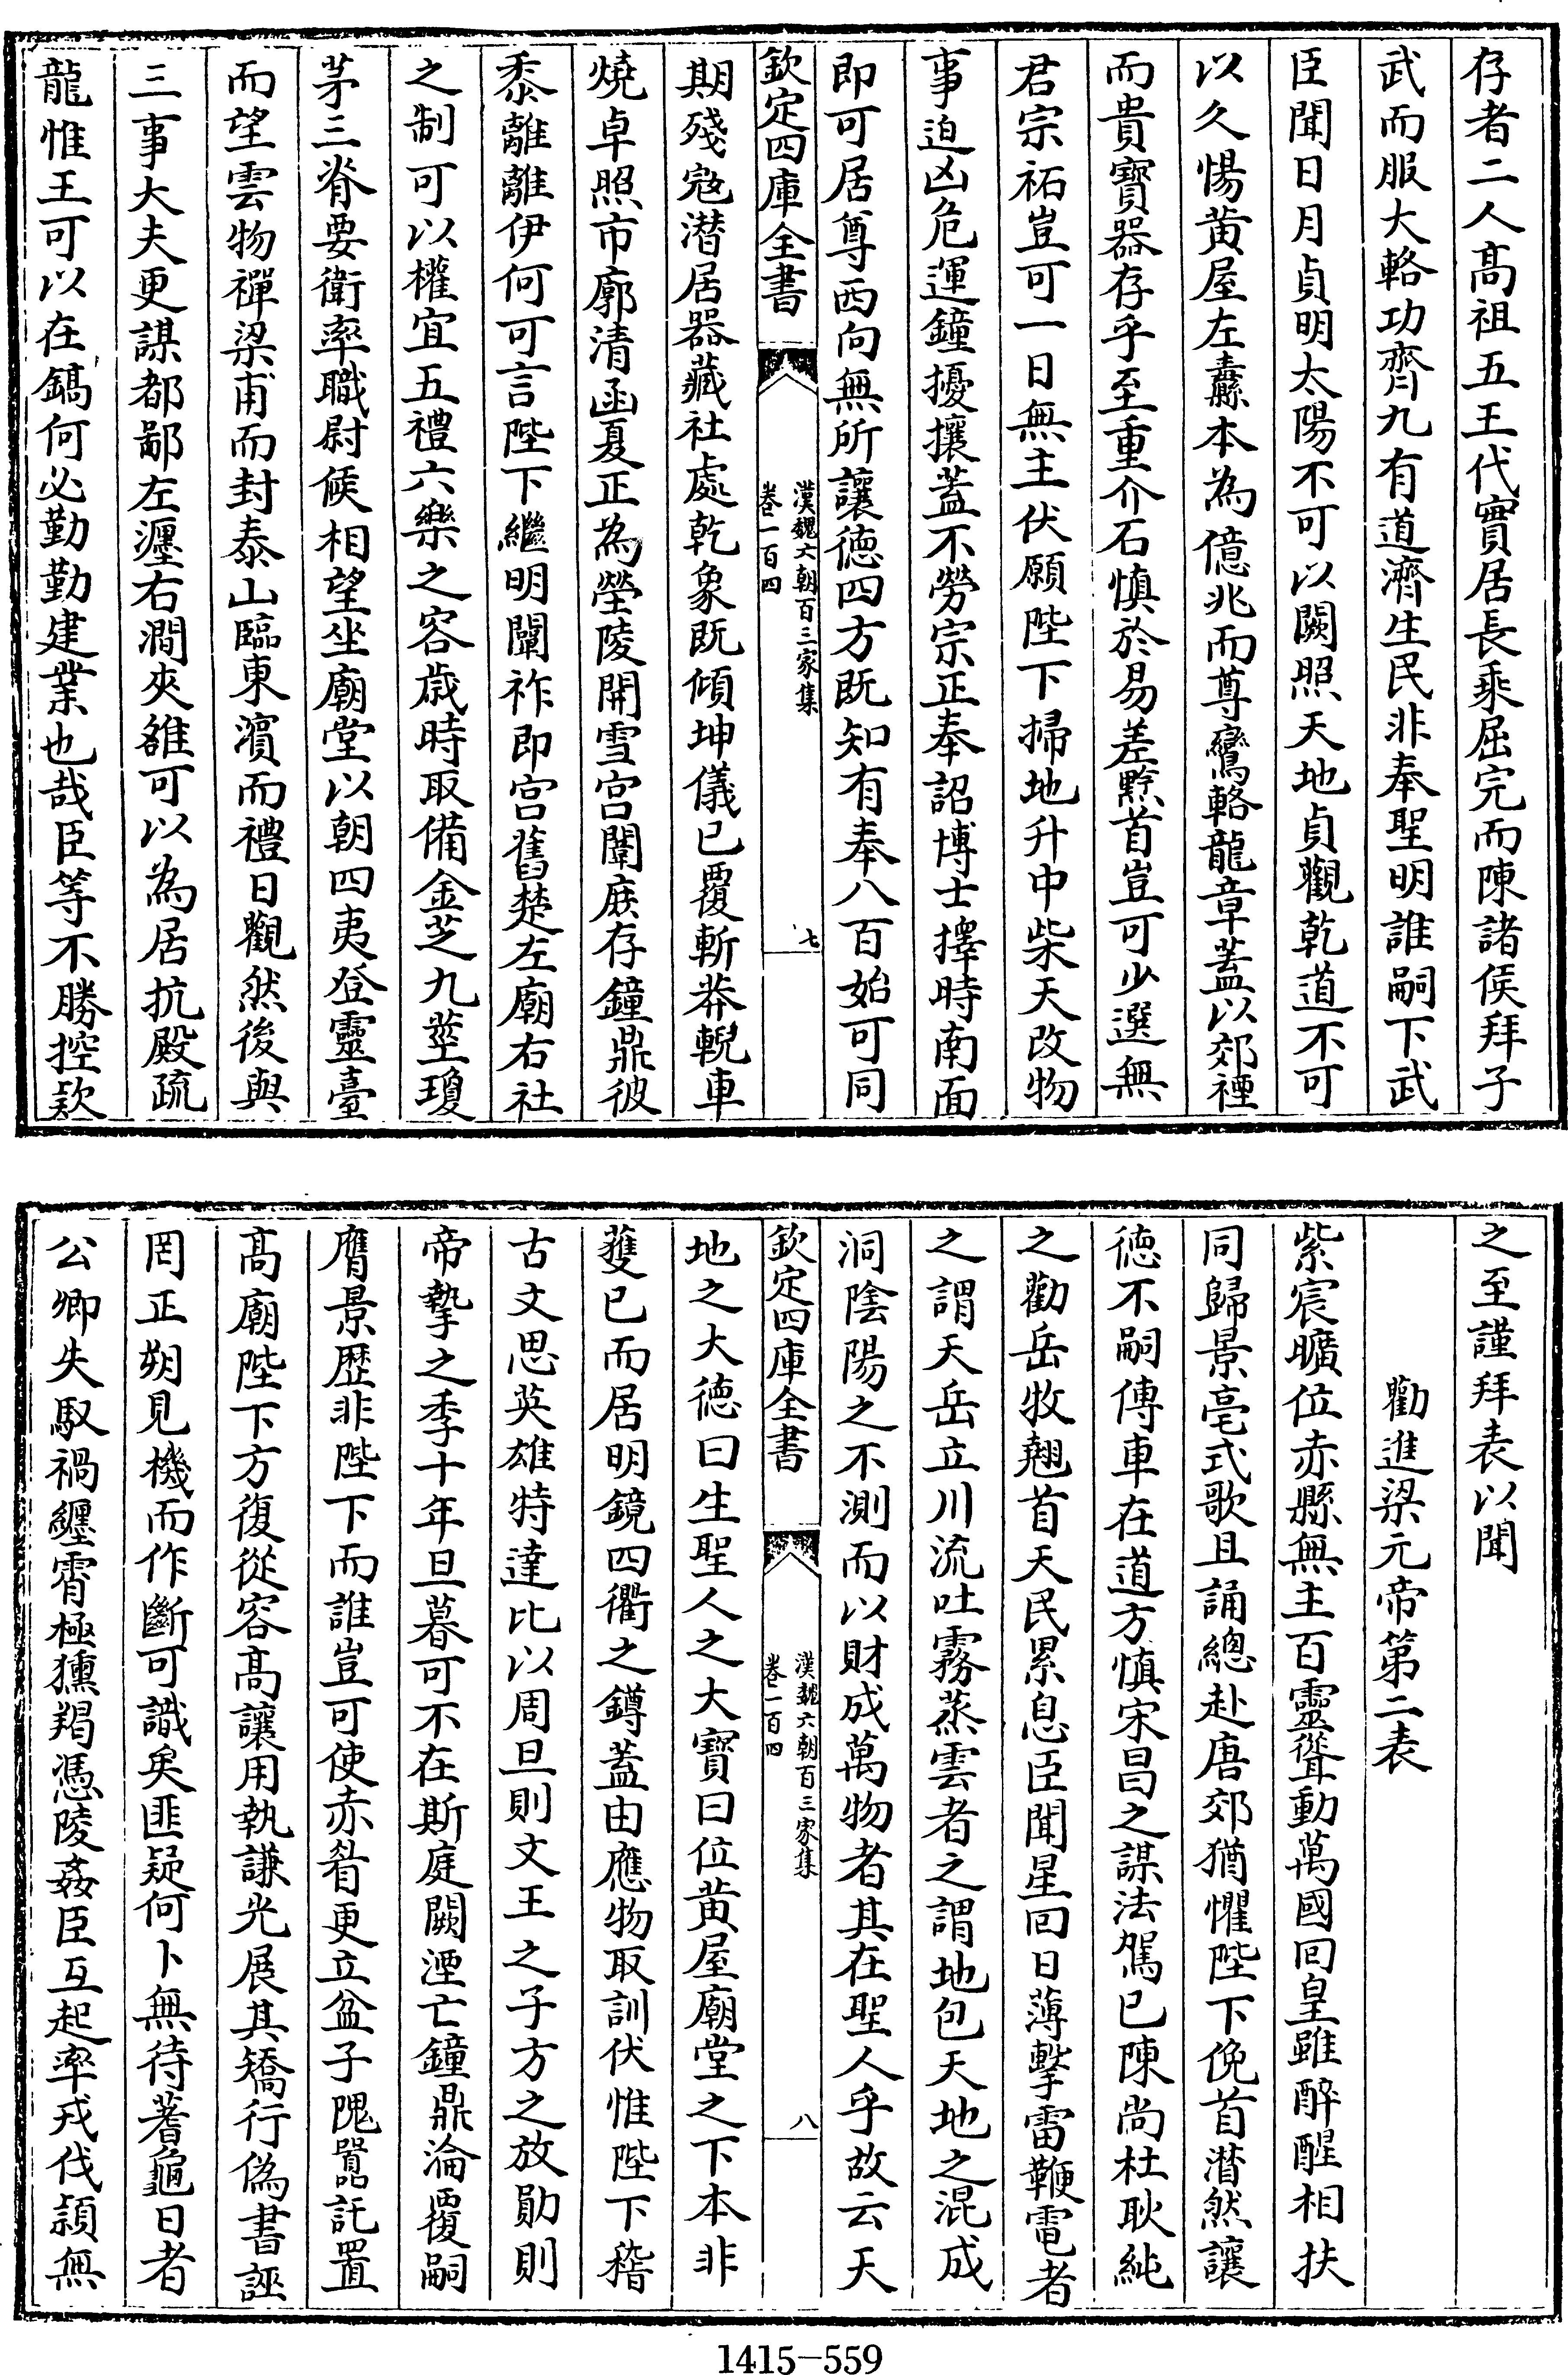 存者二人高祖五王代實居長乘屈完而陳諸侯拜子
武而服大輅功齊九有道濟生民非奉聖明誰嗣下武
臣聞日月貞明太陽不可以闕照天地貞觀乾道不可
以久惕黃屋左纛本為億兆而尊鸞輅龍章蓋以郊禋
而貴寶器存乎至重介石慎於易差黔首豈可少選無
君宗祏豈可一日無主伏願陛下掃地升中柴天改物
事迫凶危運鐘擾攘蓋不勞宗正奉詔博士擇時南面
即可居尊西向無所讓德四方既知有奉八百始可同
欽定四庫全書
漢魏六朝百三家集
卷一百四
七
期殘寇潛居器藏社處乾象既傾坤儀已覆斬莽輗車
燒卓照市廓清函夏正為塋陵開雪宮闈庶存鐘鼎彼
黍離離伊何可言陛下繼明闡祚即宮舊楚左廟右社
之制可以權宜五禮六樂之容歲時取備金芝九莖瓊
茅三脊要衛率職尉候相望坐廟堂以朝四夷登靈臺
而望雲物禪梁甫而封泰山臨東濱而禮日觀然後與
三事大夫更謀都鄙左瀍右澗夾雒可以為居抗殿疏
龍惟王可以在鎬何必勤勤建業也哉臣等不勝控款
之至謹拜表以聞
勸進梁元帝第二表
紫宸曠位赤縣無主百靈聳動萬國回皇雖醉醒相扶
同歸景亳式歌且誦總赴唐郊猶懼陛下俛首潸然讓
德不嗣傳車在道方慎宋昌之謀法駕已陳尚杜耿純
之勸岳牧翹首天民累息臣聞星回日薄擊雷鞭電者
之謂天岳立川流吐霧蒸雲者之謂地包天地之混成
洞陰陽之不測而以財成萬物者其在聖人乎故云天
欽定四庫全書
漢魏六朝百三家集
卷一百四
八
地之大德曰生聖人之大寶曰位黃屋廟堂之下本非
獲已而居明鏡四衢之鐏蓋由應物取訓伏惟陛下稽
古文思英雄特達比以周旦則文王之子方之放勛則
帝摯之季十年旦暮可不在斯庭闕湮亡鐘鼎淪覆嗣
膺景歷非陛下而誰豈可使赤眉更立盆子隗囂託置
高廟陛下方復從容高讓用執謙光展其矯行偽書誣
罔正朔見機而作斷可識矣匪疑何卜無待蓍龜日者
公卿失馭禍纏霄極獯羯憑陵姦臣互起率戎伐潁無
1415-559